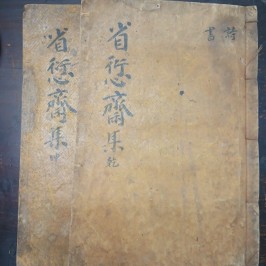 詩
書
省愆齋集乾
省愆齋集坤